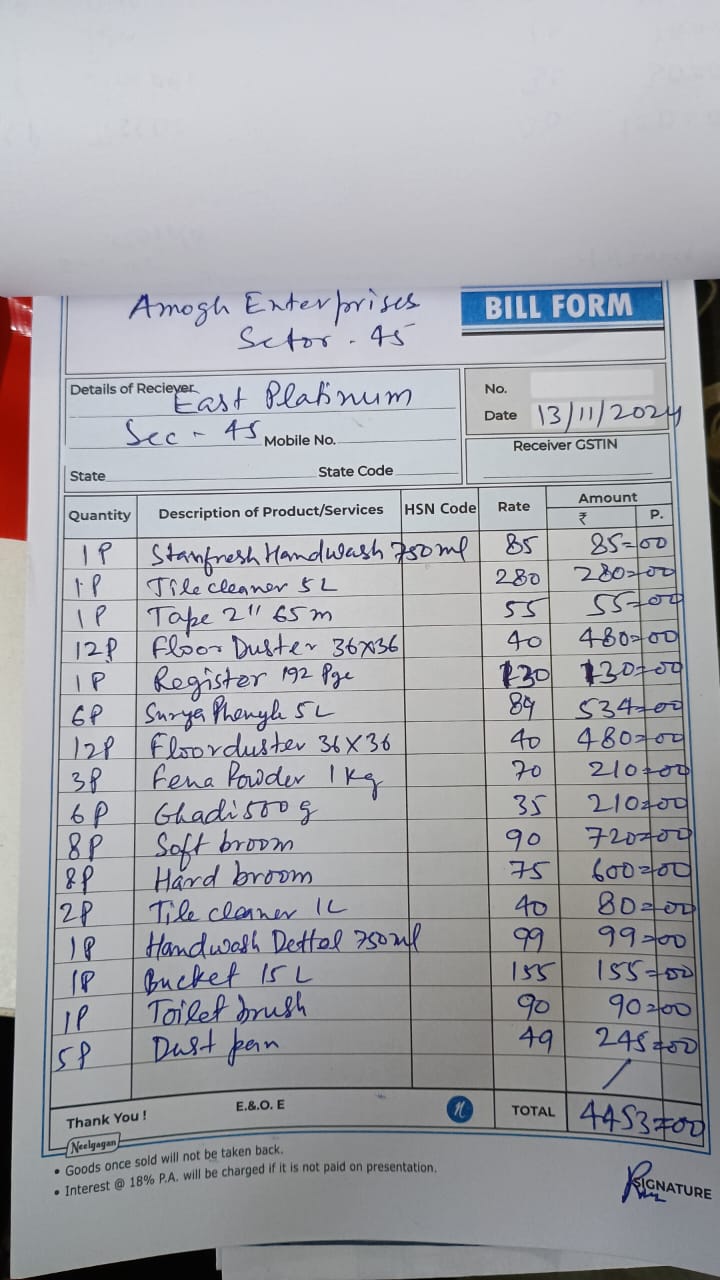 Amogh Enterprises
Sctor - 45
BILL FORM
Details of Reciever East Platinum
Sec - 45 Mobile No.
State State Code
No.
Date 13/11/2024
Receiver GSTIN
Quantity Description of Product/Services HSN Code Rate Amount
₹ P.
1P Stanfresh Handwash 750ml 85 85=00
1P Tile cleaner 5L 280 280=00
1P Tape 2" 65m 55 55=00
12P Floor Duster 36x36 40 480=00
1P Register 192 Pge 130 130=00
6P Surya Phenyle 5L 89 534=00
12P Floor duster 36X36 40 480=00
3P Fena Powder 1 Kg 70 210=00
6P Ghadi 500g 35 210=00
8P Soft broom 90 720=00
8P Hard broom 75 600=00
2P Tile cleaner 1L 40 80=00
1P Handwash Dettol 750ml 99 99=00
1P Bucket 15 L 155 155=00
1P Toilet brush 90 90=00
5P Dust pan 49 245=00
Thank You ! E.&O. E n TOTAL 4453=00
Neelgagan
• Goods once sold will not be taken back.
• Interest @ 18% P.A. will be charged if it is not paid on presentation.
SIGNATURE